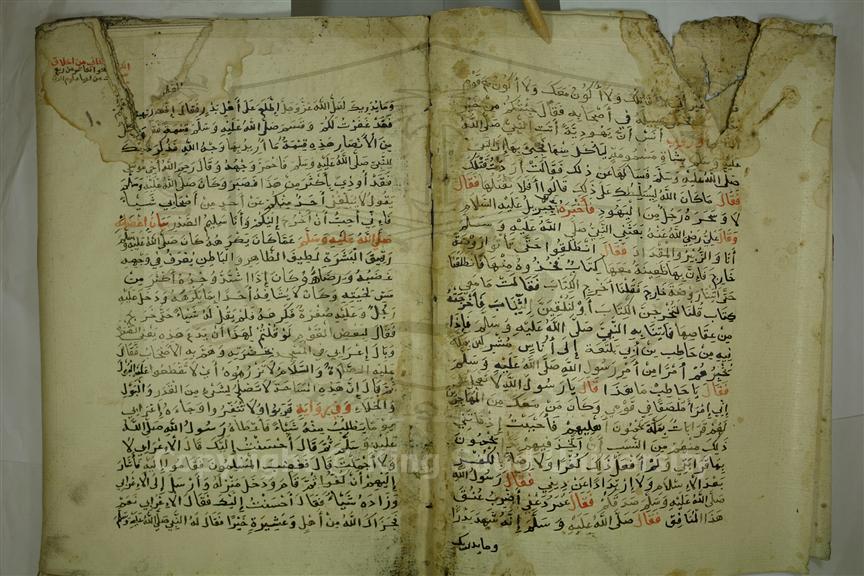 أقاتلك ولا أكون معك ولا أكون مع قوم
في أصحابه فقال جئتكم من خير
أنس أن يهودية أتت النبي صلى الله
عليه وسلم بشاة مسمومة
صلى الله عليه وسلم فسألها عن ذلك فقالت أردت قتلك
فقال ما كان الله ليسلطك على ذلك قالوا أفلا نقتلها فقال
لا وسحره رجل من اليهود فأخبره جبريل عليه السلام
وقال علي رضي الله عنه بعثني النبي صلى الله عليه وسلم
أنا والزبير والمقداد فقال انطلقوا حتى تأتوا روضة
خاخ فإن بها ظعينة معها كتاب فخذوه منها فانطلقنا
حتى أتينا روضة خاخ فقلنا أخرجي الكتاب فقالت ما معي
كتاب قلنا لتخرجن الكتاب أو لتلقين الثياب فأخرجته
من عقاصها فأتينا به النبي صلى الله عليه وسلم فإذا
فيه من حاطب بن أبي بلتعة إلى أناس
يخبرهم أمرا من أمر رسول الله صلى الله عليه وسلم
فقال يا حاطب ما هذا قال يا رسول الله لا تعجل
إني امرأ ملصقا في قومي وكان من معك من المهاجرين
لهم قرابات بمكة يحمون أهليهم فأحببت إذ فاتني
ذلك منهم من النسب أن أتخذ فيهم يدا يحمون
بها قرابتي ولم أفعل ذلك كفرا ولا رضا بالكفر
بعد الإسلام ولا ارتدادا عن ديني فقال رسول الله
صلى الله عليه وسلم صدقكم فقال عمر دعني أضرب عنق
هذا المنافق فقال صلى الله عليه وسلم إنه شهد بدرا
وما يدريك
وما يدريك لعل الله عز وجل اطلع على أهل بدر فقال
فقد غفرت لكم وقسم صلى الله عليه وسلم قسمة
من الأنصار هذه قسمة ما أريد بها وجه الله فذكر ذلك
للنبي صلى الله عليه وسلم فاحمر وجهه وقال رحم الله أخي موسى
فقد أوذي بأكثر من هذا فصبر وكان صلى الله عليه وسلم
يقول لا يبلغني أحد منكم عن أحد من أصحابي شيئا
فإني أحب أن أخرج إليكم وأنا سليم الصدر
صلى الله عليه وسلم عما كان يكرهه كان صلى الله عليه وسلم
رقيق البشرة لطيف الظاهر والباطن يعرف في وجهه
غضبه ورضاؤه وكان إذا اشتد وجده أكثر من
مس لحيته وكان لا يشافه أحدا بما يكرهه ودخل عليه
رجل وعليه صفرة فكرهه فلم يقل له شيئا حتى خرج
فقال لبعض القوم لو قلتم لهذا أن يدع هذه
وبال إعرابي في المسجد بحضرته وهم به الأصحاب فقال
عليه الصلاة والسلام لا تزرموه أي لا تقطعوا عليه البول
ثم قال إن هذه المساجد لا تصلح لشيء من القذر والبول
والخلاء وفي رواية قربوا ولا تنفروا وجاءه إعرابي
يوما يطلب منه شيئا فأعطاه رسول الله صلى الله
عليه وسلم ثم قال أحسنت إليك قال الإعرابي لا
ولا أجملت قال فغضب المسلمون وقاموا إليه فأشار
إليهم أن كفوا ثم قام ودخل منزله وأرسل إلى الإعرابي
وزاده شيئا فقال أحسنت إليك فقال الإعرابي نعم
فجزاك الله من أهل وعشيرة خيرا فقال له النبي صلى الله عليه وسلم